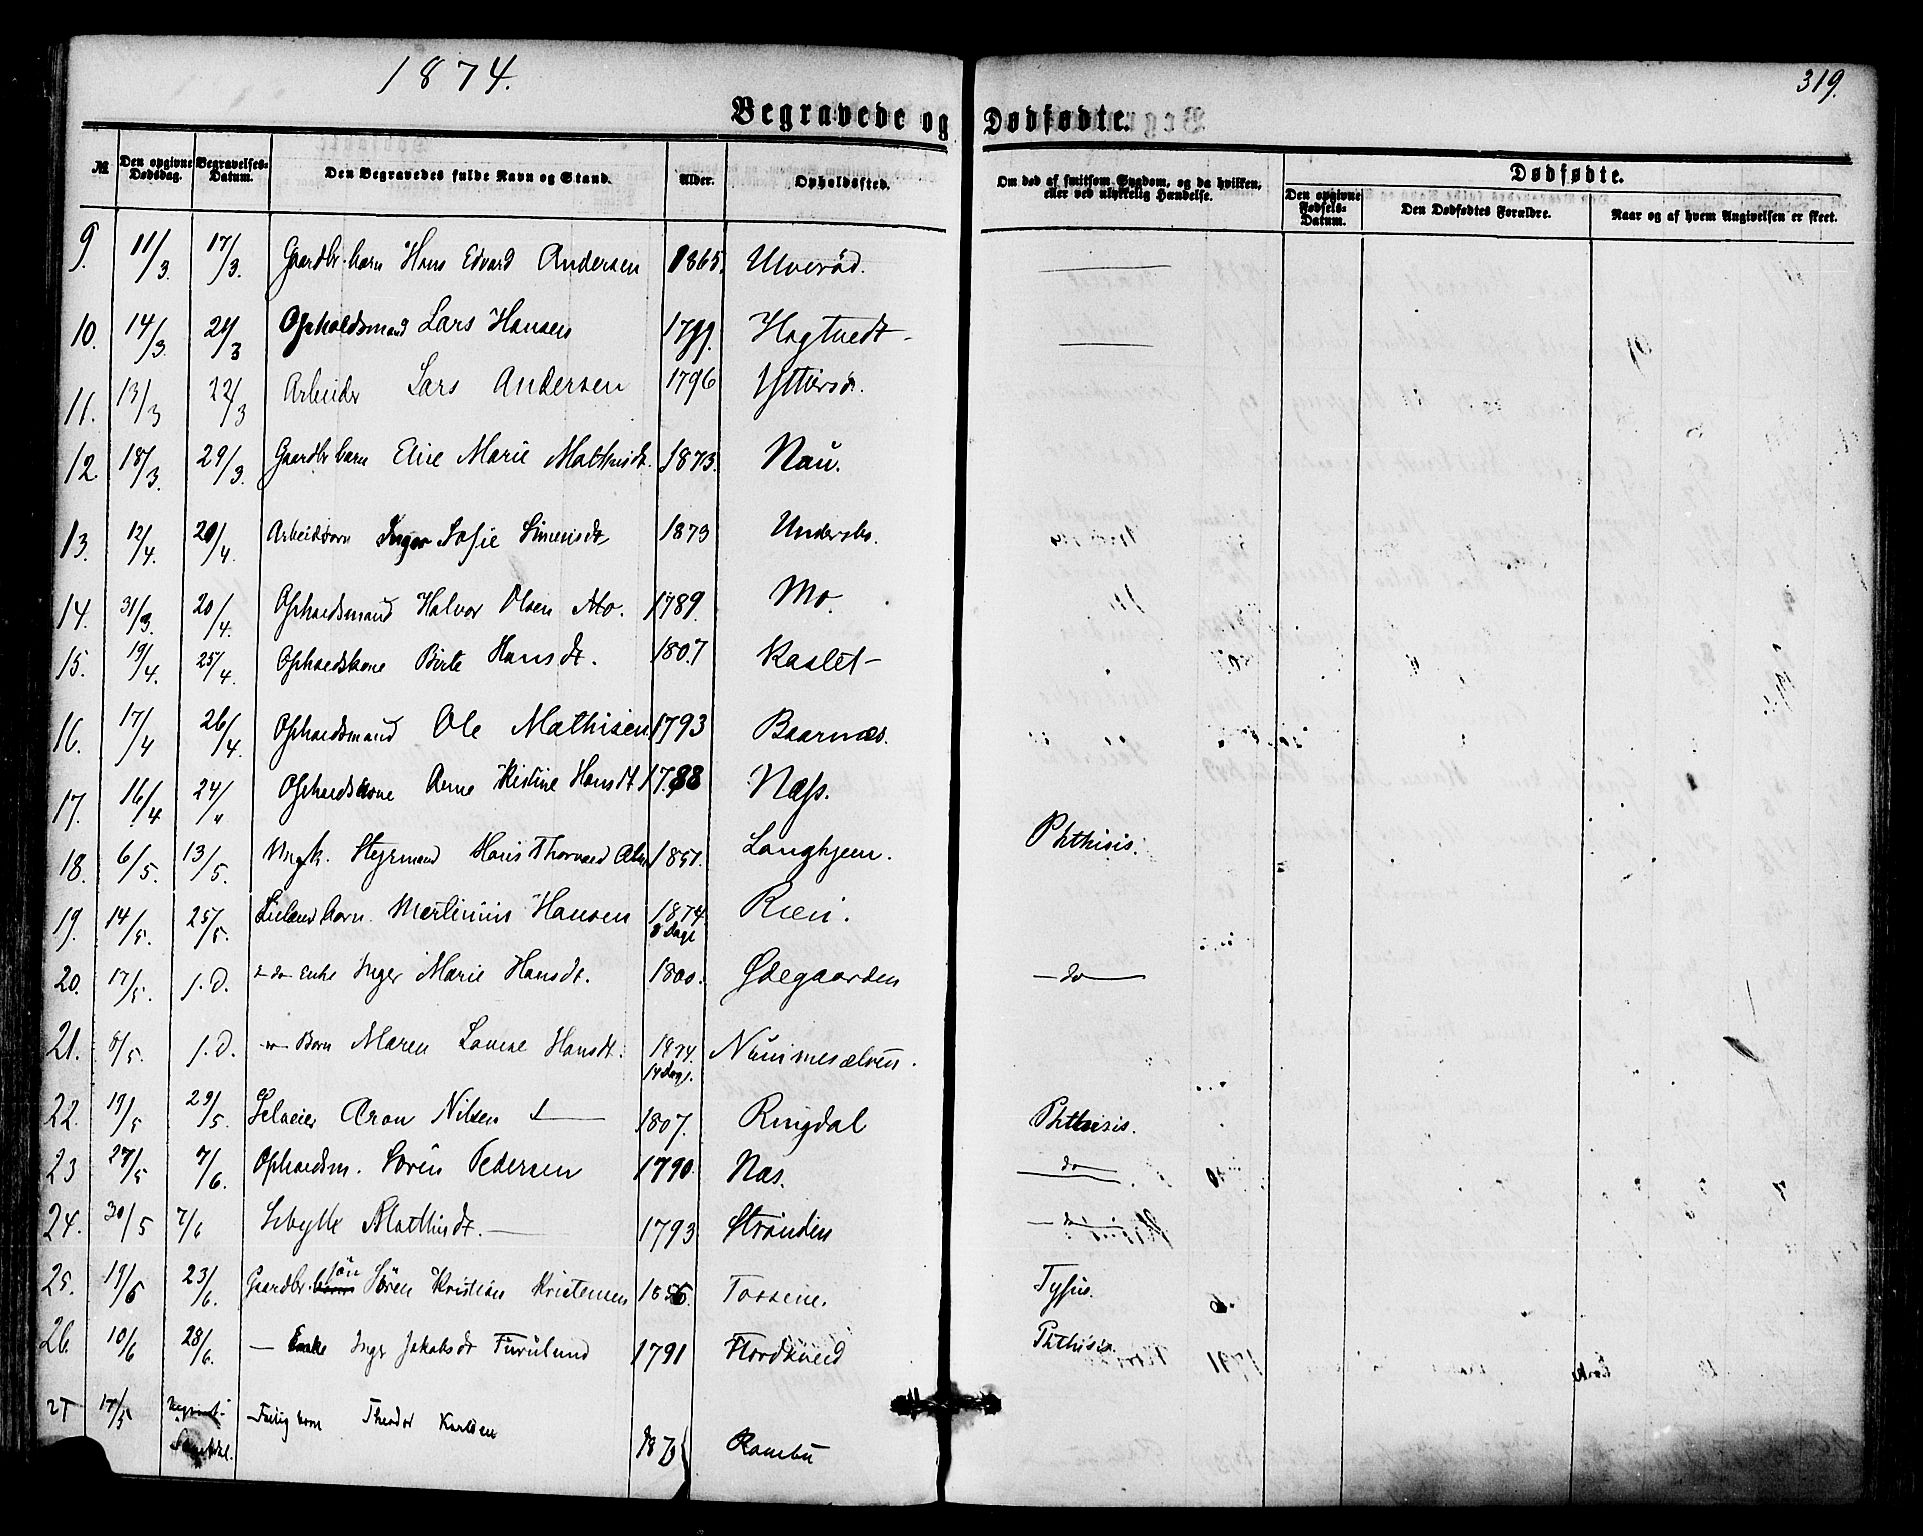 1874.
319.
Begravede og Dødfødte.
№ Den opgivne Dødsdag. Begravelses-Datum. Den Begravedes fulde Navn og Stand. Alder. Opholdssted. Om død af smitsom Sygdom, og da hvilken, eller ved ulykkelig Hændelse. Dødfødte. Den opgivne Fødsels-Datum. Den Dødfødtes Forældre. Naar og af hvem Angivelsen er skeet.
9. 11/3. 17/3. Gaardbr. barn Hans Edvard Andersen 1865. Ulverød.
10. 14/3. 24/3 Opholdsmand Lars Hansen 1799. Hogtvedt
11. 13/3 22/3 Arbeider Lars Andersen 1796
12. 18/3. 29/3. Gaardbr barn Eline Marie Mathisdt. 1873. Nau.
13. 12/4. 20/4. Arbeidsbarn Inger Sofie Simensdt 1873
14. 31/3. 20/4. Opholdsmand Halvor Olsen Mo. 1789. Mo.
15. 19/4. 25/4. Opholdskone Birte Hansdt. 1807 Kaslet
16. 17/4 26/4. Opholdsmand Ole Mathisen 1793 Baarnæs.
17. 16/4 24/4 Opholdskone Anne Kistine Hansdt 1788 Næss.
18. 6/5. 13/5. Ungk. Styrmand Hans Thorvald 1851. Langhjem. Phthisis.
19. 14/5. 25/5. barn. Martinius Hansen 1874. 8 Dage Riei.
20. 17/5. s. D. - do - Enke Inger Marie Hansdt. 1800. Ødegaarden - do -
21. 8/5. s. D. Barn Maren Lovise Hansdt. 1874. 14 Dag. Nummesælven.
22. 19/5 29/5. Aron Nilsen 1807. Ringdal Phthisis.
23 27/5 7/6. Opholdsm. Sören Pedersen 1790 Næs. do
24. 30/5 7/6 Sibylle Mathisdt. 1793 Stranden - do -
25. 19/6 23/6. Gaardbr. sön Sören Kristian Kristensen 1856. Tossene. Tyfus.
26. 10/6 28/6. — Enke Inger Jakobsdt Furulund 1791 Phthisis.
27 17/5 Fattig barn Theodor Karlsen 187 Rambu